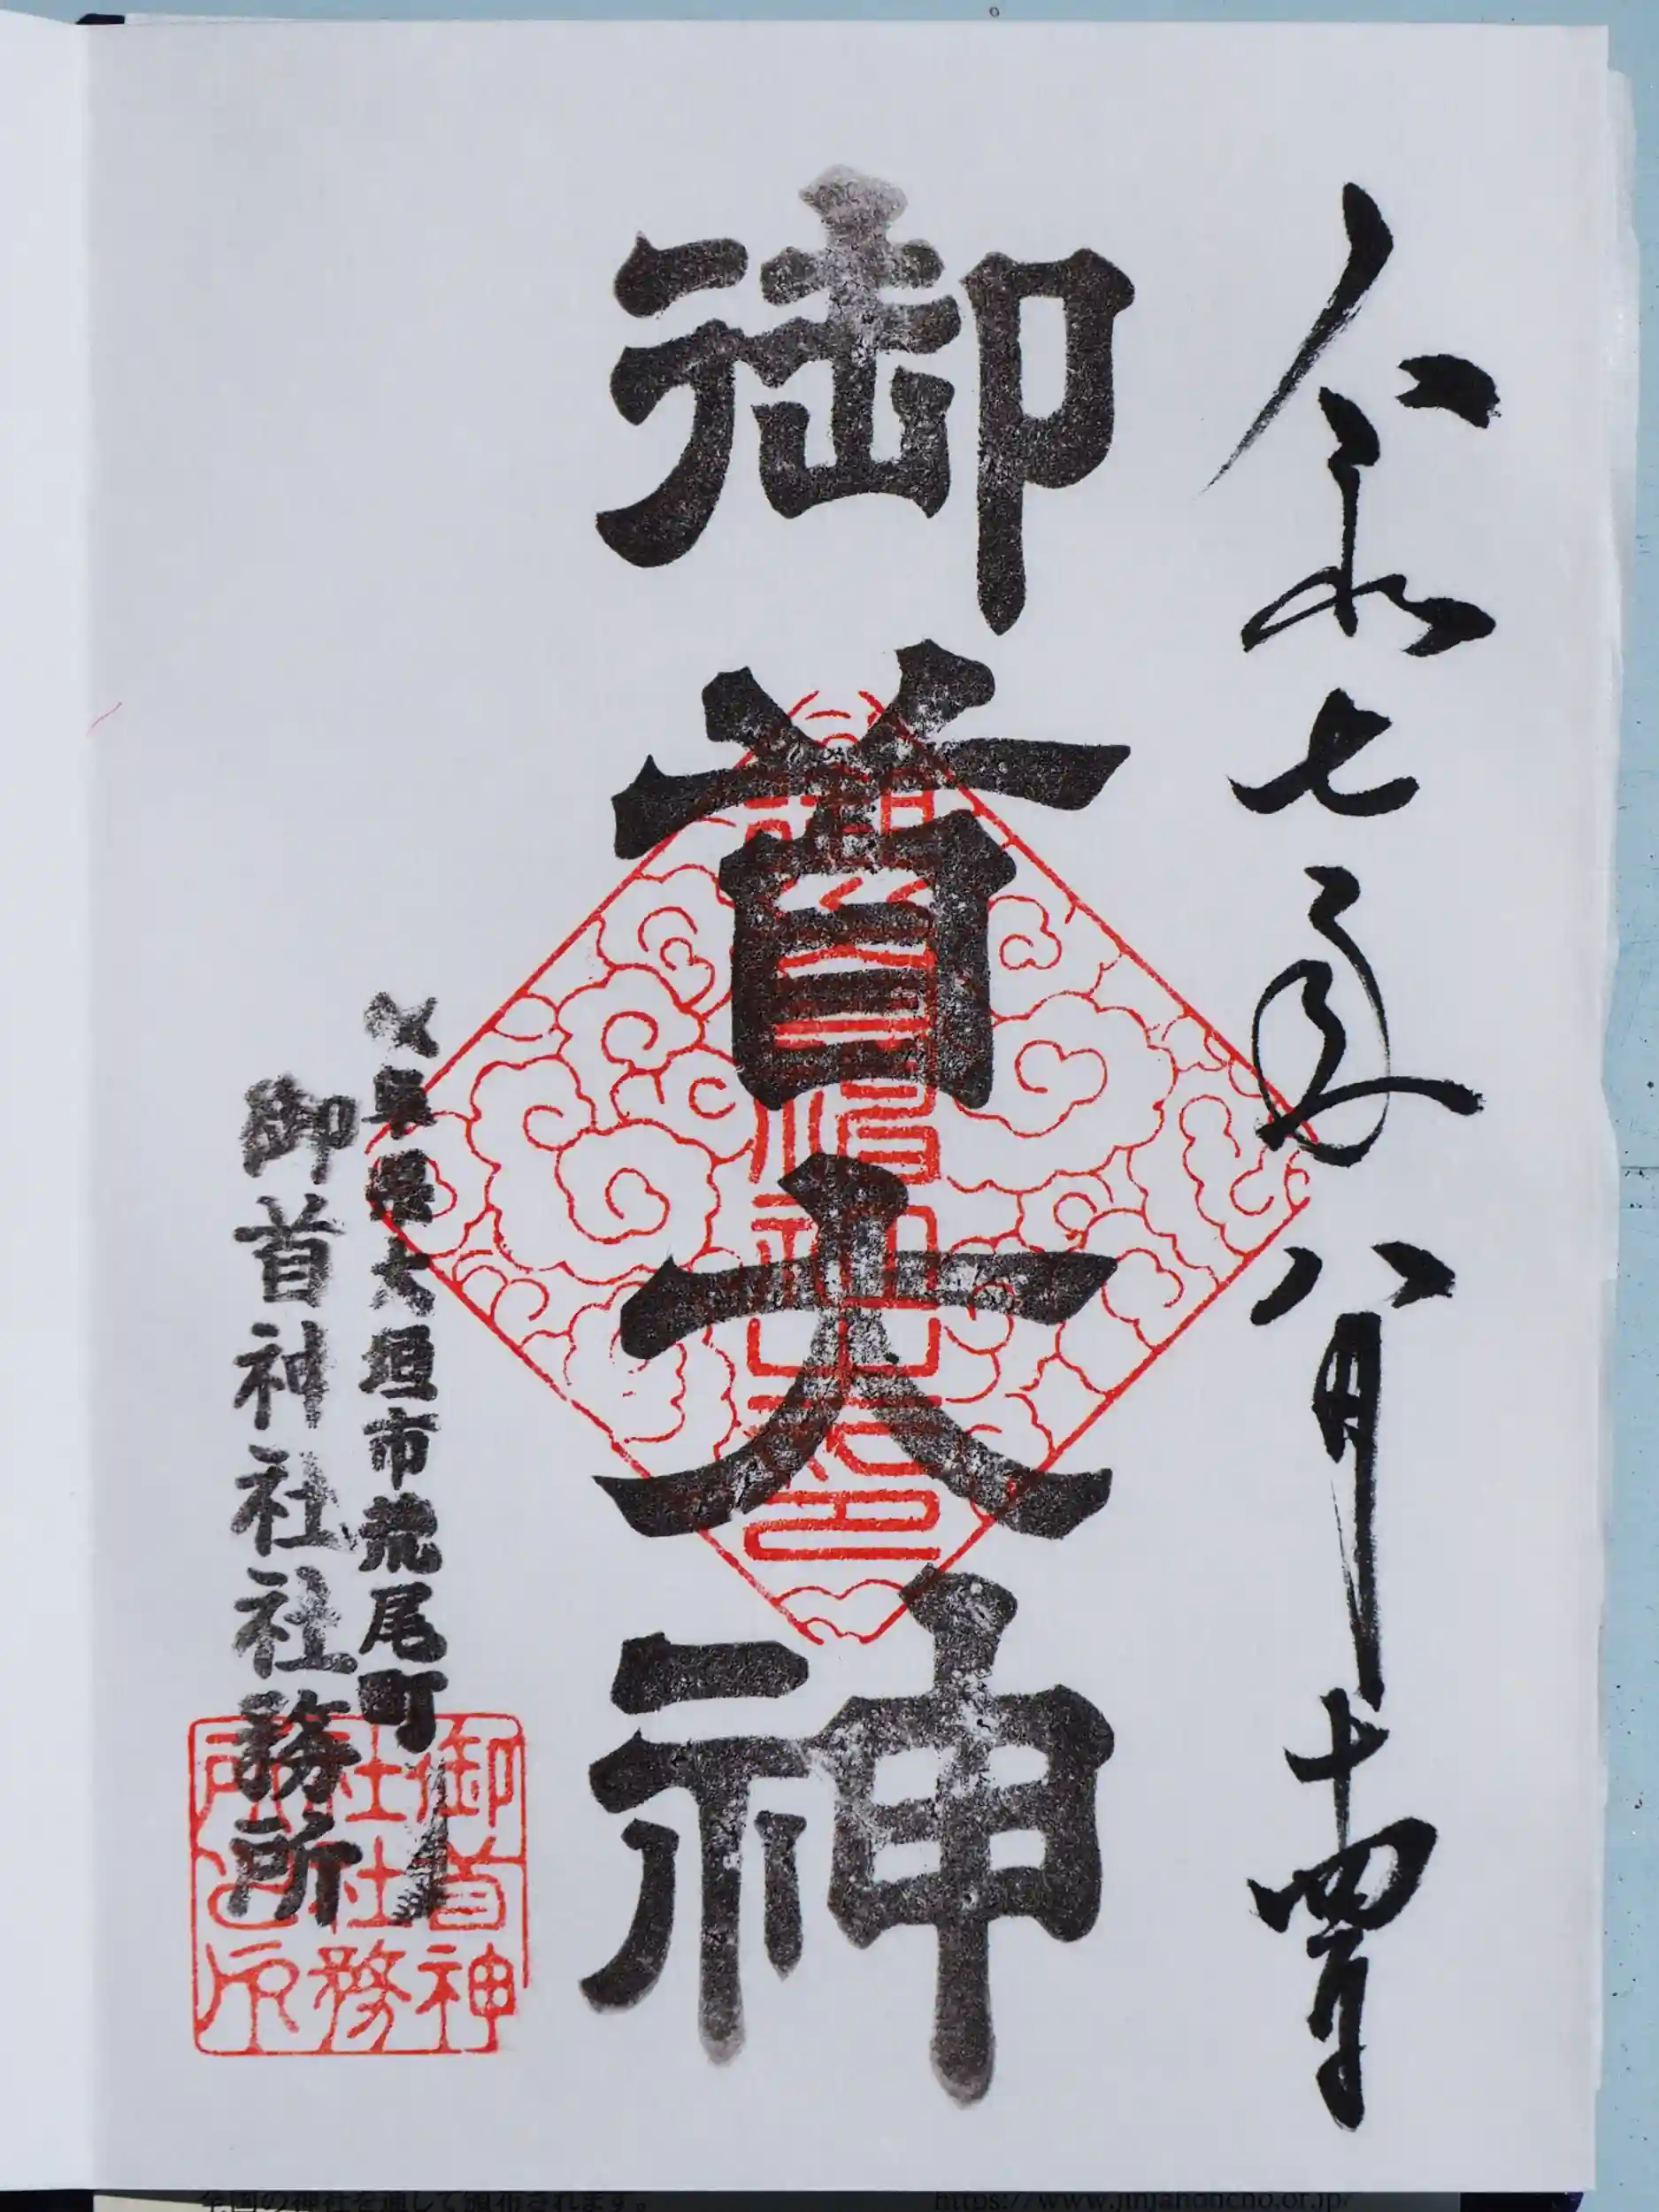 令和七年八月十四日
御首大神
岐阜県大垣市荒尾町
御首神社社務所
御首神社社務所之印
全国の神社を通して頒布されます。
https://www.jinjahoncho.or.jp/